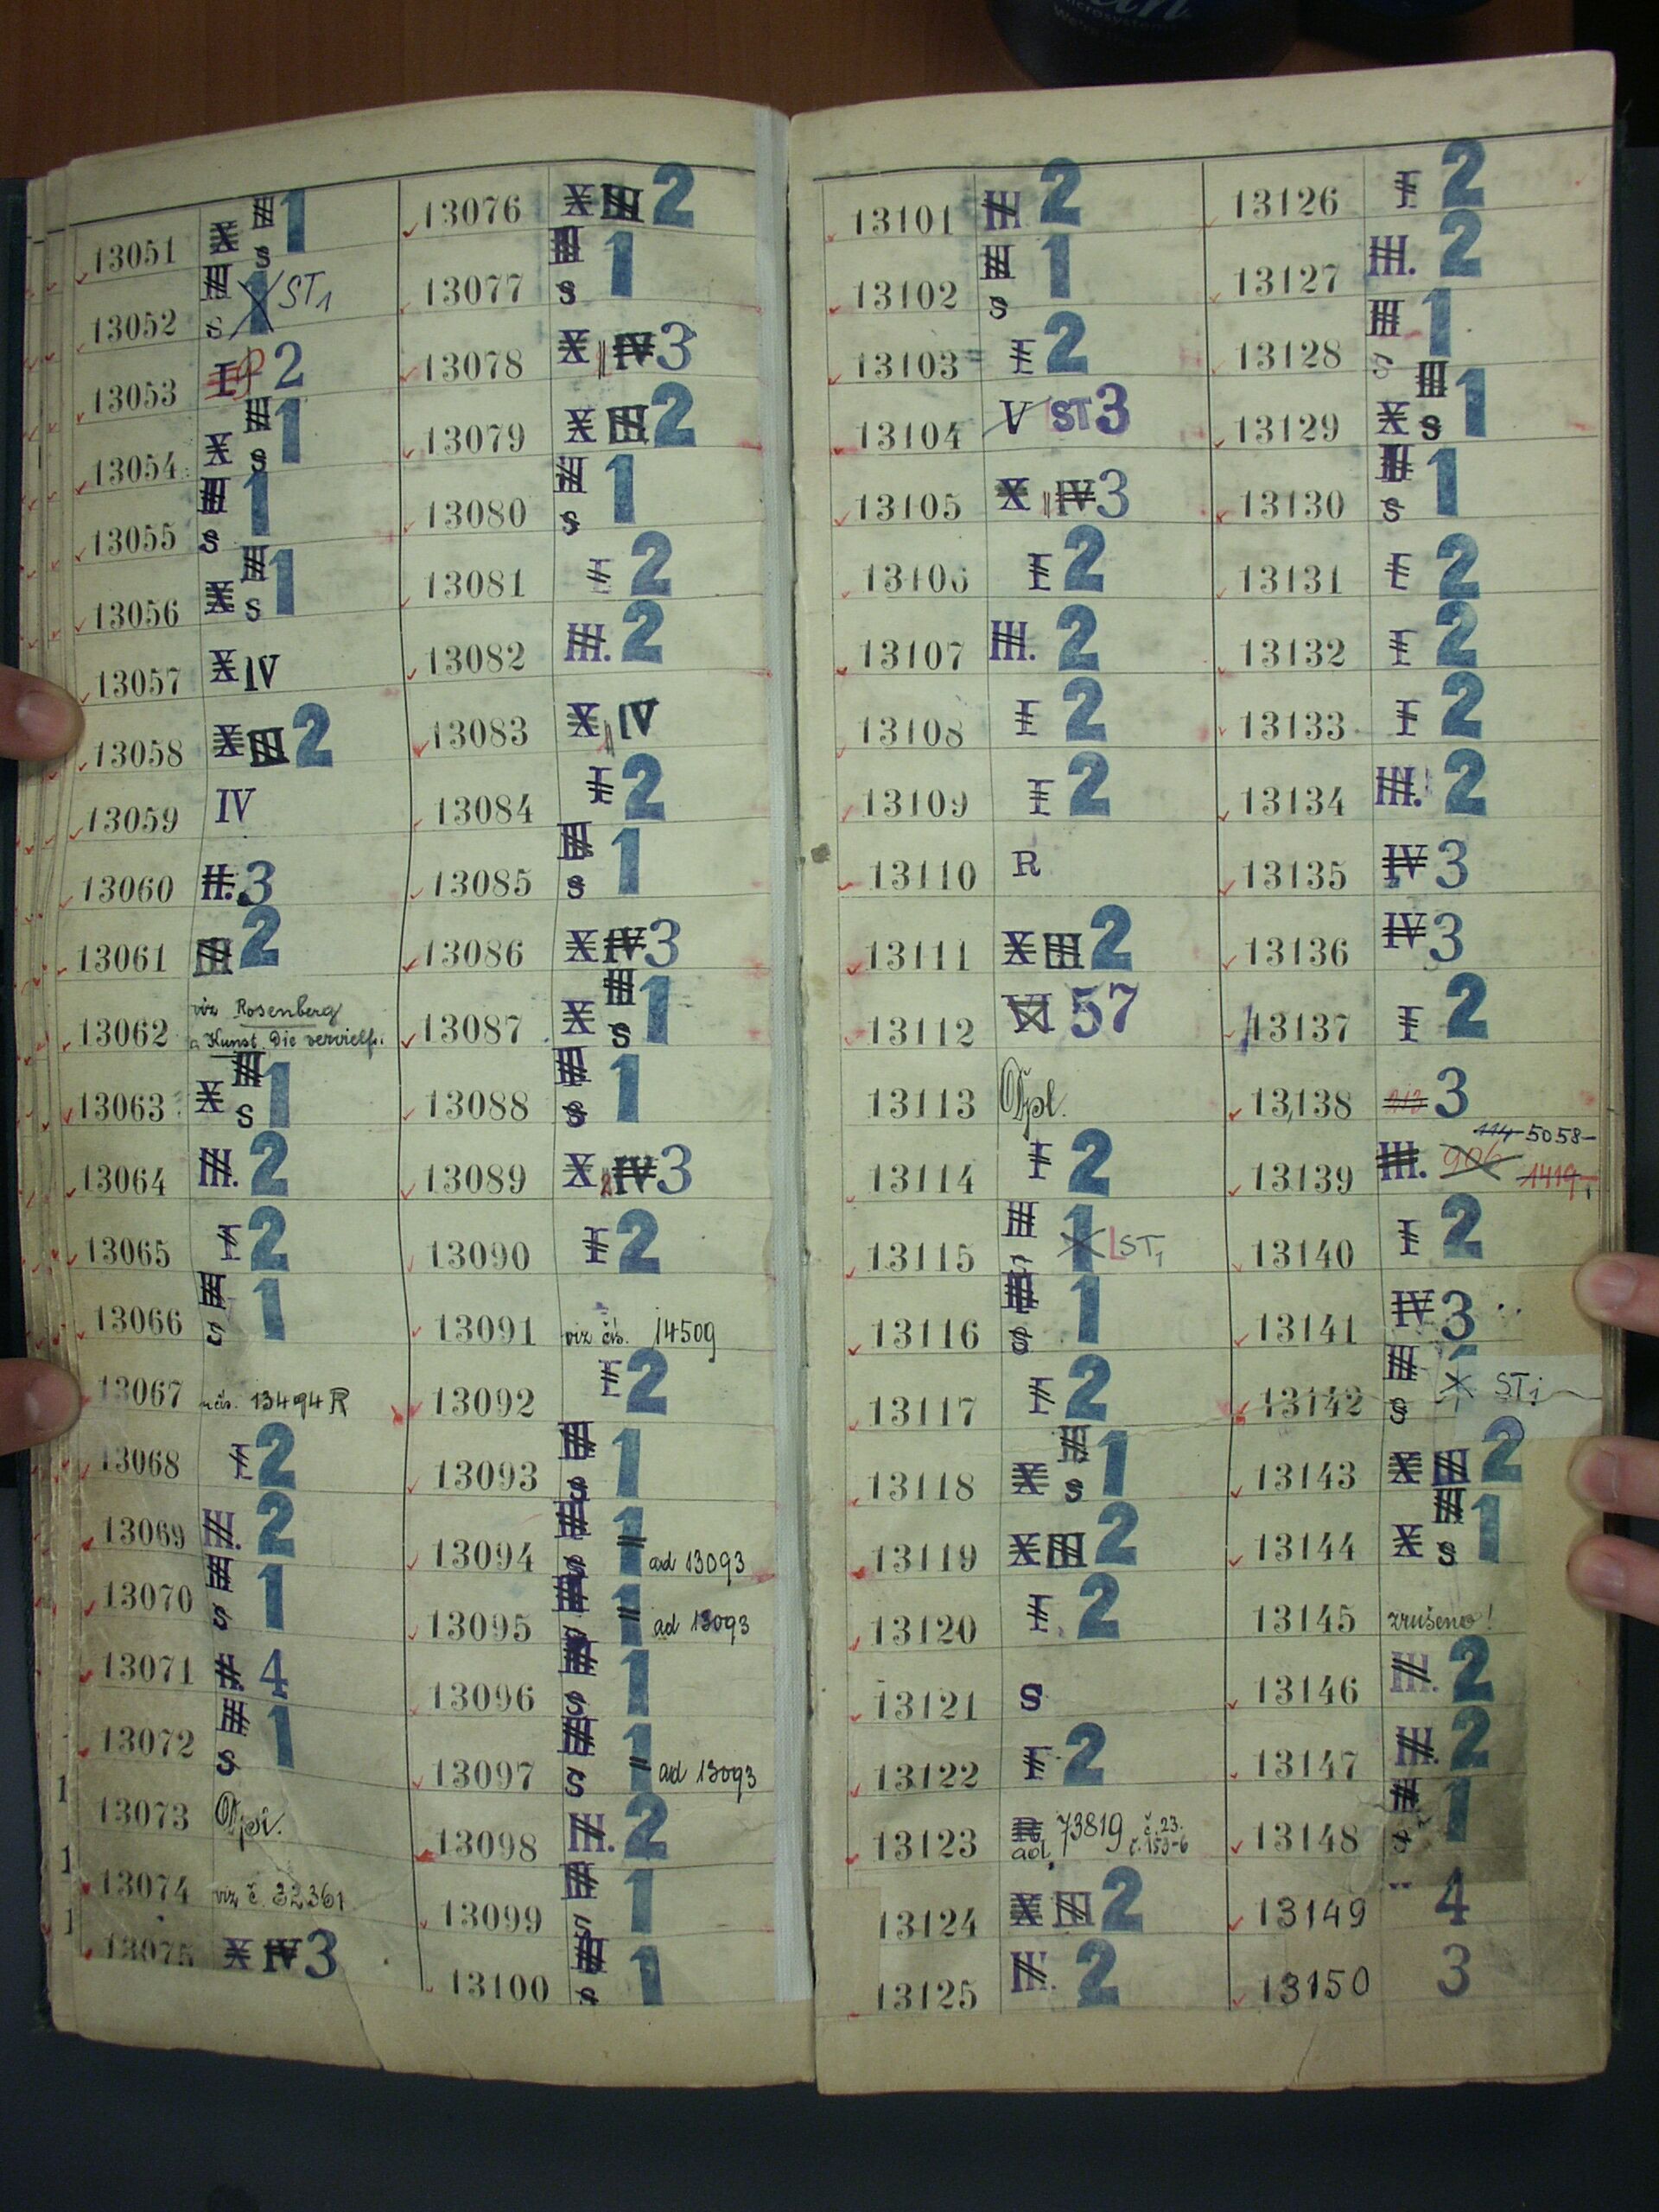 13051 X III S 1
13052 III S 1 ST1
13053 I 2
13054 X III S 1
13055 III S 1
13056 X III S 1
13057 X IV
13058 X III 2
13059 IV
13060 II. 3
13061 III 2
13062 viz Rosenberg
Kunst. Die vervielf.
13063 X III S 1
13064 III. 2
13065 I 2
13066 III S 1
13067 13494 R
13068 I 2
13069 III. 2
13070 III S 1
13071 II. 4
13072 III S 1
13073
13074 viz č. 32361
13075 X IV 3
13076 X III 2
13077 III S 1
13078 X IV 3
13079 X III 2
13080 III S 1
13081 I 2
13082 III. 2
13083 X IV
13084 I 2
13085 III S 1
13086 X IV 3
13087 X III S 1
13088 III S 1
13089 X IV 3
13090 I 2
13091 viz čís. 14509
13092 I 2
13093 III S 1
13094 III S 1 ad 13093
13095 III S 1 ad 13093
13096 III S 1
13097 III S 1 ad 13093
13098 III. 2
13099 III S 1
13100 III S 1
13101 III 2
13102 III S 1
13103 I 2
13104 V ST 3
13105 X IV 3
13106 I 2
13107 III. 2
13108 I 2
13109 I 2
13110 R
13111 X III 2
13112 VI 57
13113 Dpl.
13114 I 2
13115 III S 1 ST1
13116 III S 1
13117 I 2
13118 X III S 1
13119 X III 2
13120 I 2
13121 S
13122 I 2
13123 R ad 73819 č. 23.
č. 153-6
13124 X III 2
13125 III. 2
13126 I 2
13127 III. 2
13128 III S 1
13129 X III S 1
13130 III S 1
13131 I 2
13132 I 2
13133 I 2
13134 III. 2
13135 IV 3
13136 IV 3
13137 I 2
13138 3
13139 III. 906 114 5058 1419
13140 I 2
13141 IV 3
13142 III S 1 ST1
13143 X III 2
13144 X III S 1
13145 zrušeno!
13146 III. 2
13147 III. 2
13148 III S 1
13149 4
13150 3